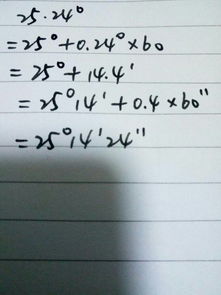 25.24°
=25°+0.24°×60
=25°+14.4'
=25°14'+0.4×60"
=25°14'24"